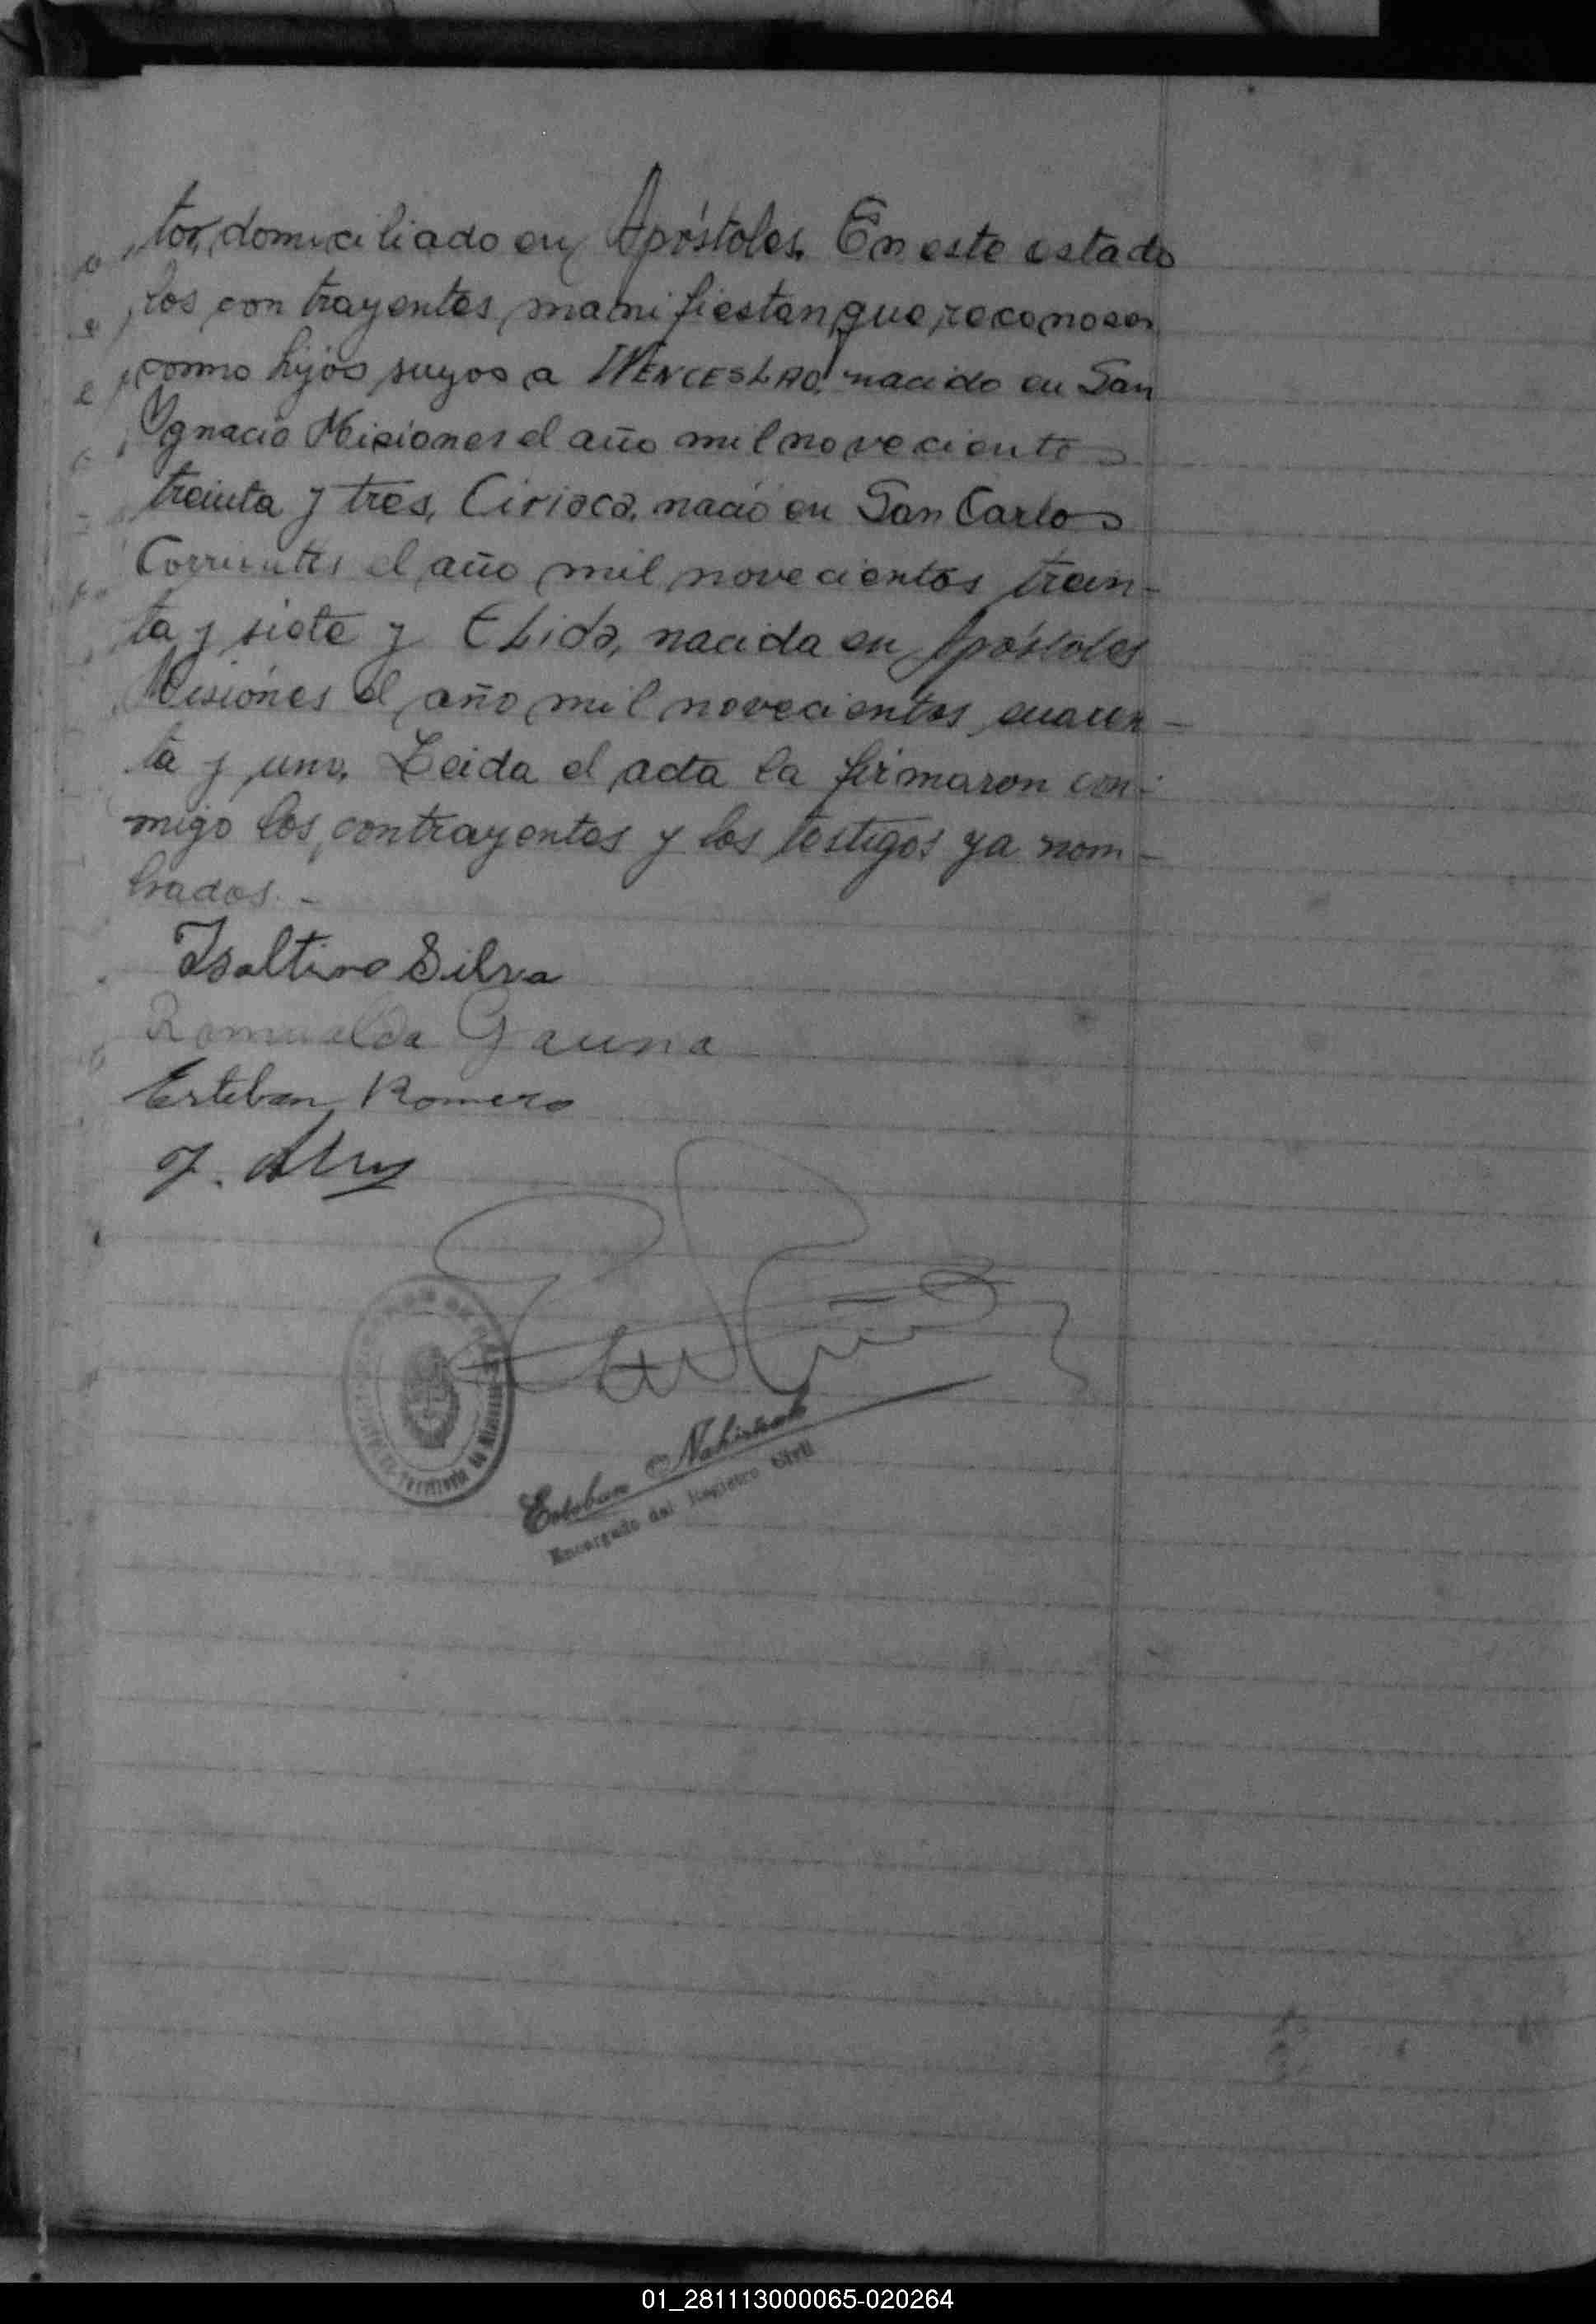 tor, domiciliado en Apóstoles. En este estado
los contrayentes manifiestan que reconosen
como hijos suyos a WENCESLAO, nacido en San
Ygnacio Misiones el año mil novecientos
treinta y tres, Ciriaca, nació en San Carlos
Corrientes el año mil novecientos trein-
ta y siete y Elida, nacida en Apóstoles
Misiónes el año mil novecientos cuaren-
ta y uno. Leida el acta la firmaron con-
migo los contrayentes y los testigos ya nom-
brados.-
Isaltino Silva
Romualda Gauna
Esteban Romero
Esteban
Encargado del Registro Civil
Territorio de Misiones
01_281113000065-020264